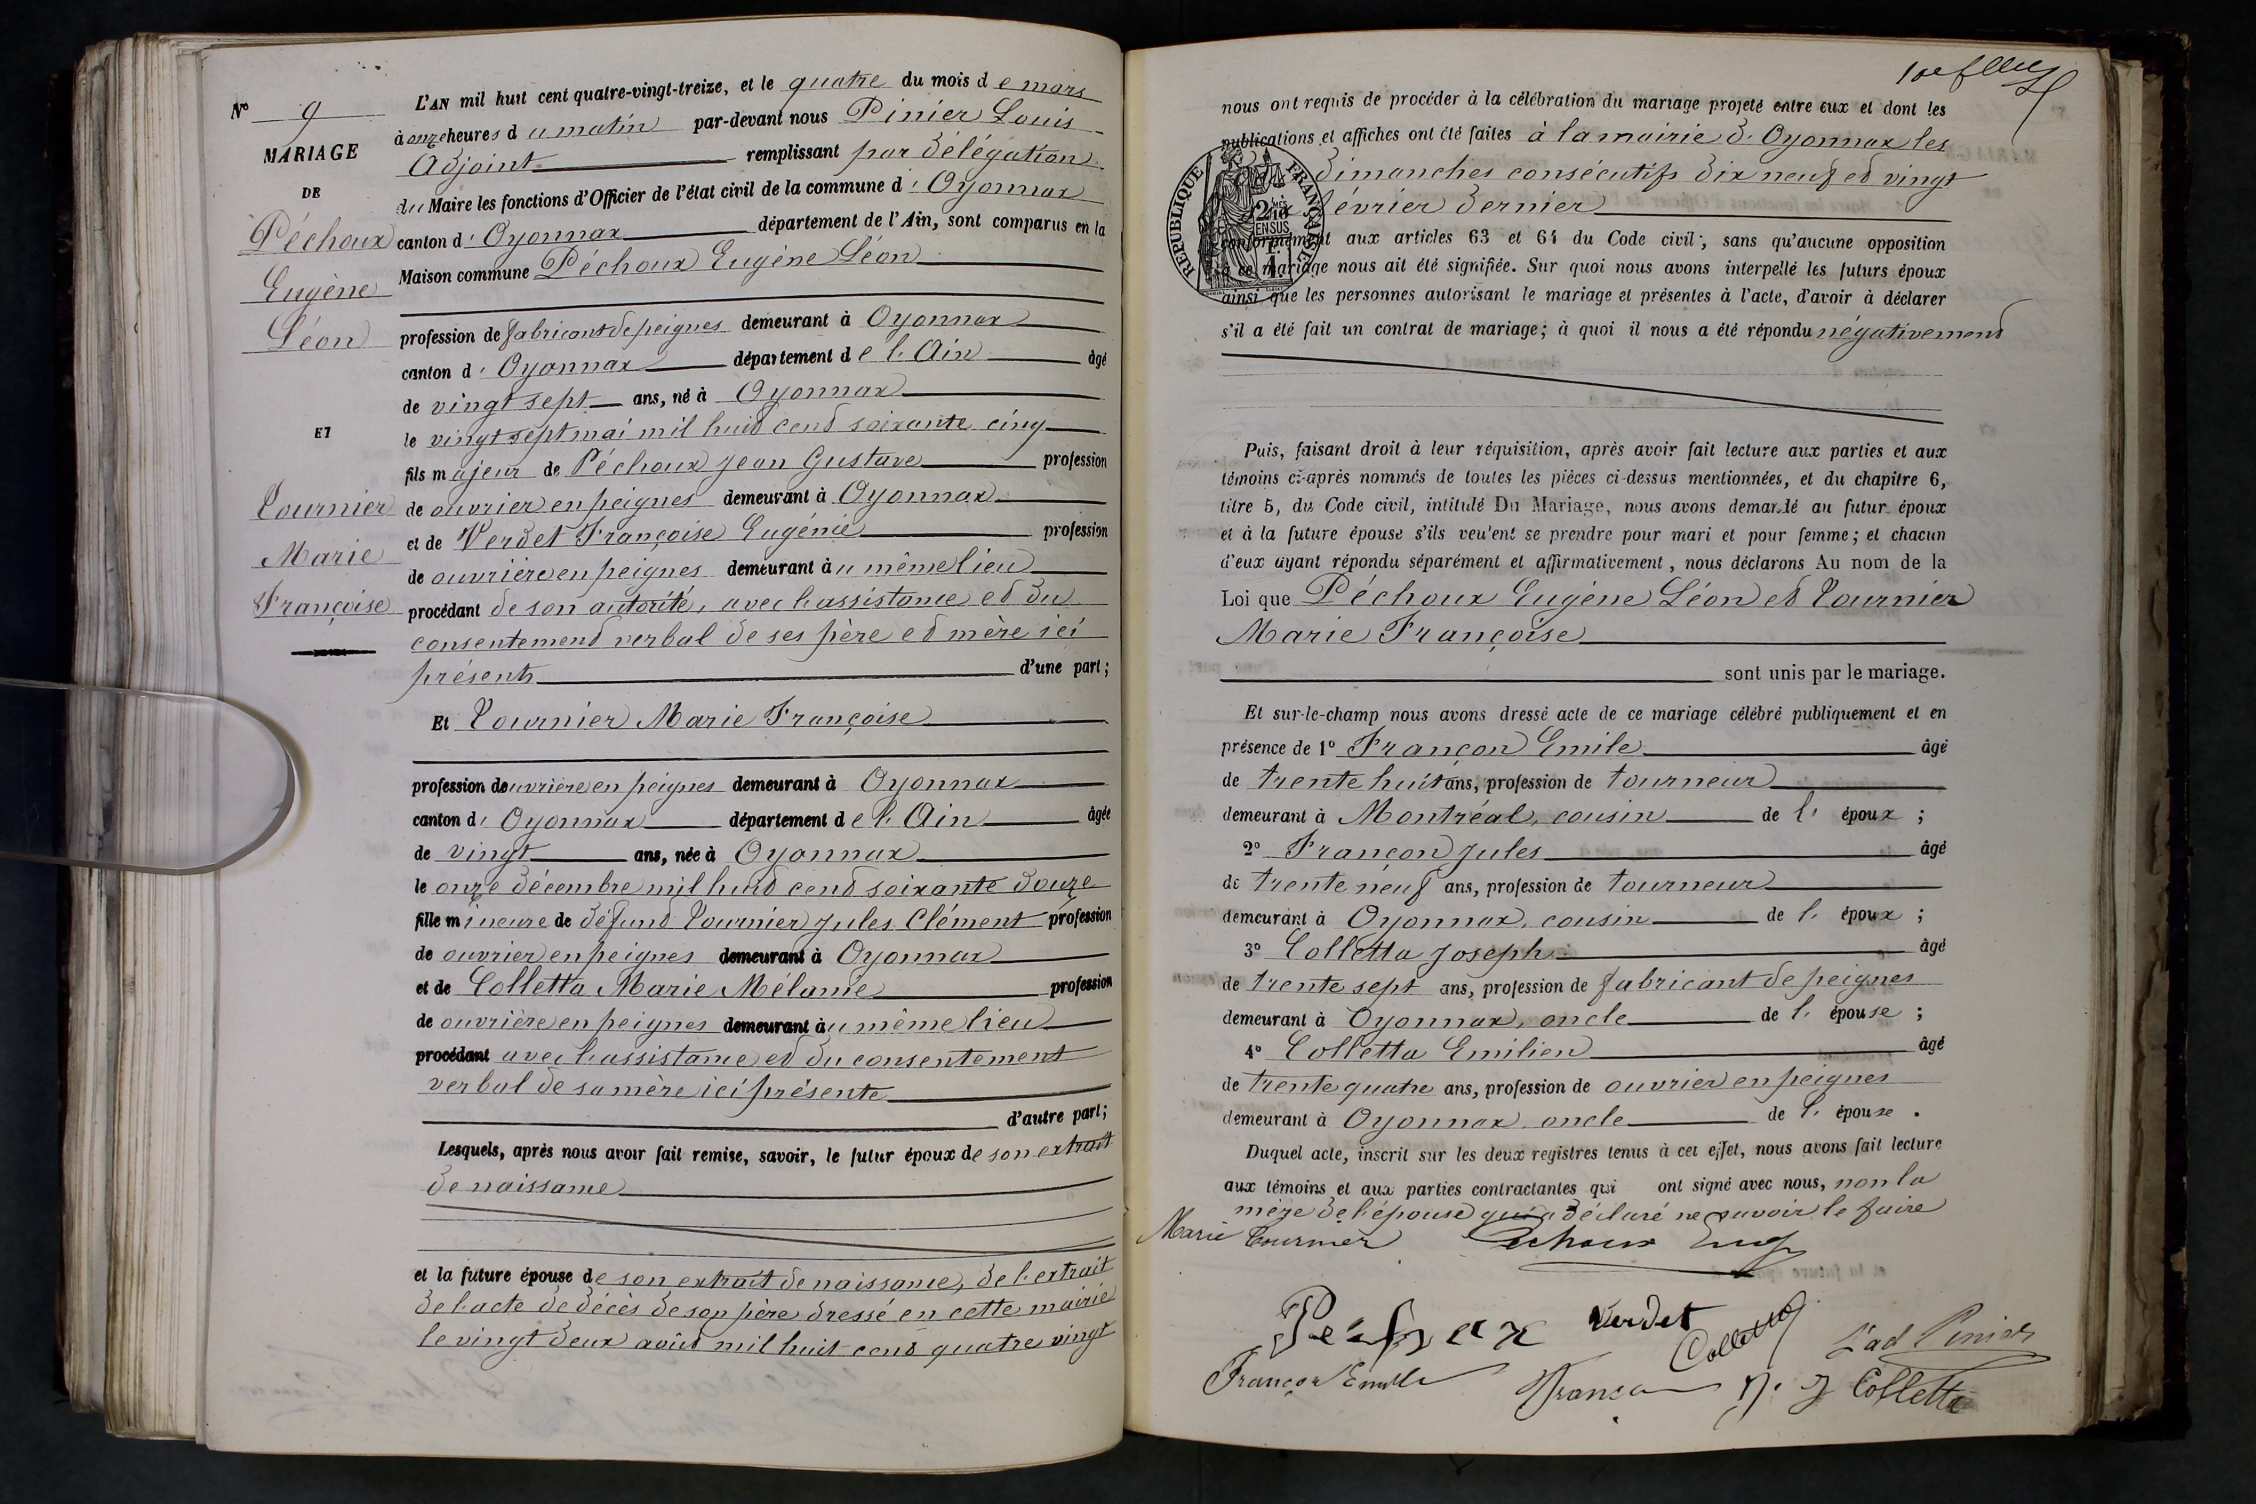 N° 9
MARIAGE
DE
Péchoux
Eugène
Léon
ET
Tournier
Marie
Françoise
L'AN mil huit cent quatre-vingt-treize, et le quatre du mois de mars
à onze heures du matin par-devant nous Pinier Louis
Adjoint remplissant par délégation
du Maire les fonctions d'Officier de l'état civil de la commune d'Oyonnax
canton d'Oyonnax département de l'Ain, sont comparus en la
Maison commune Péchoux Eugène Léon
profession de fabricant de peignes demeurant à Oyonnax
canton d'Oyonnax département de l'Ain âgé
de vingt sept ans, né à Oyonnax
le vingt sept mai mil huit cent soixante cinq
fils majeur de Péchoux Jean Gustave profession
de ouvrier en peignes demeurant à Oyonnax
et de Verdet Françoise Eugénie profession
de ouvrière en peignes demeurant au même lieu
procédant de son autorité, avec l'assistance et du
consentement verbal de ses père et mère ici
présents d'une part;
Et Tournier Marie Françoise
profession de ouvrière en peignes demeurant à Oyonnax
canton d'Oyonnax département de l'Ain âgée
de vingt ans, née à Oyonnax
le onze décembre mil huit cent soixante douze
fille mineure de défunt Tournier Jules Clément profession
de ouvrier en peignes demeurant à Oyonnax
et de Colletta Marie Mélanie profession
de ouvrière en peignes demeurant au même lieu
procédant avec l'assistance et du consentement
verbal de sa mère ici présente
d'autre part;
Lesquels, après nous avoir fait remise, savoir, le futur époux de son extrait
de naissance
et la future épouse de son extrait de naissance, de l'extrait
de l'acte de décès de son père dressé en cette mairie
le vingt deux août mil huit cent quatre vingt
nous ont requis de procéder à la célébration du mariage projeté entre eux et dont les
publications et affiches ont été faites à la mairie d'Oyonnax les
dimanches consécutifs dix neuf et vingt
six février dernier
conformément aux articles 63 et 64 du Code civil; sans qu'aucune opposition
à ce mariage nous ait été signifiée. Sur quoi nous avons interpellé les futurs époux
ainsi que les personnes autorisant le mariage et présentes à l'acte, d'avoir à déclarer
s'il a été fait un contrat de mariage; à quoi il nous a été répondu négativement
RÉPUBLIQUE FRANÇAISE
Puis, faisant droit à leur réquisition, après avoir fait lecture aux parties et aux
témoins ci-après nommés de toutes les pièces ci-dessus mentionnées, et du chapitre 6,
titre 5, du Code civil, intitulé Du Mariage, nous avons demandé au futur époux
et à la future épouse s'ils veulent se prendre pour mari et pour femme; et chacun
d'eux ayant répondu séparément et affirmativement, nous déclarons Au nom de la
Loi que Péchoux Eugène Léon et Tournier
Marie Françoise
sont unis par le mariage.
Et sur-le-champ nous avons dressé acte de ce mariage célébré publiquement et en
présence de 1° Françon Emile âgé
de trente huit ans, profession de tourneur
demeurant à Montréal, cousin de l'époux;
2° Françon Jules âgé
de trente neuf ans, profession de tourneur
demeurant à Oyonnax, cousin de l'époux;
3° Colletta Joseph âgé
de trente sept ans, profession de fabricant de peignes
demeurant à Oyonnax, oncle de l'épouse;
4° Colletta Emilien âgé
de trente quatre ans, profession de ouvrier en peignes
demeurant à Oyonnax, oncle de l'épouse.
Duquel acte, inscrit sur les deux registres tenus à cet effet, nous avons fait lecture
aux témoins et aux parties contractantes qui ont signé avec nous, non la
mère de l'épouse qui a déclaré ne savoir le faire
Marie Tournier Pechoux Eug
Verdet
Colletta L'ad Pinier
Françon Emile Françon J. J Colletta